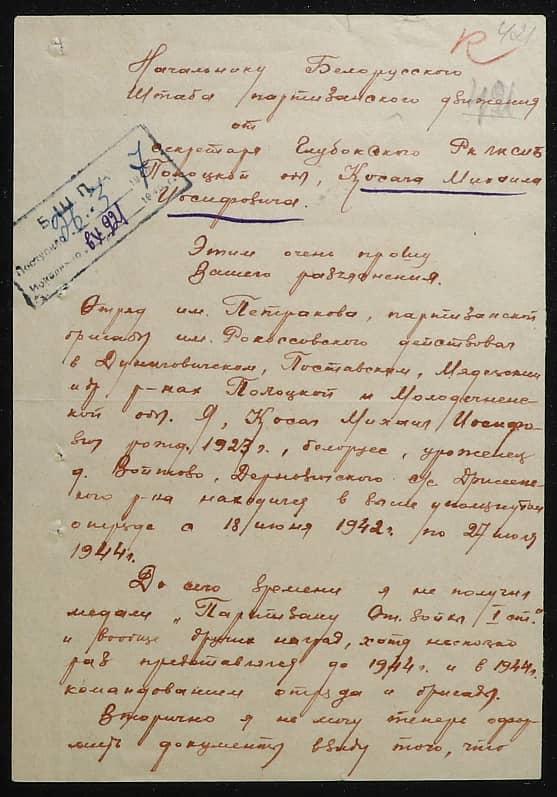 421
Начальнику Белорусского
Штаба партизанского движения
от
секретаря Глубокского РК ЛКСМБ
Полоцкой обл, Косача Михаила
Иосифовича.
БШПД
Поступило
вх 921
Этим очень прошу
Вашего разъяснения.
Отряд им. Петракова, партизанской
бригады им. Рокоссовского действовал
в Дуниловичском, Поставском, Мядельском
и др р-нах Полоцкой и Молодечнен-
ской обл. Я, Косач Михаил Иосифо-
вич рожд. 1923 г., белорус, уроженец
д. Войтово, Дерновичского с/с Дриссен-
ского р-на находился в выше упомянутом
отряде с 18 июня 1942 г. по 27 июля
1944 г.
До сего времени я не получил
медали „Партизану От. войны I ст."
и вообще других наград, хотя несколько
раз представлялся до 1944 г. и в 1944 г.
командованием отряда и бригады.
Вторично я не могу теперь офор-
мить документы ввиду того, что